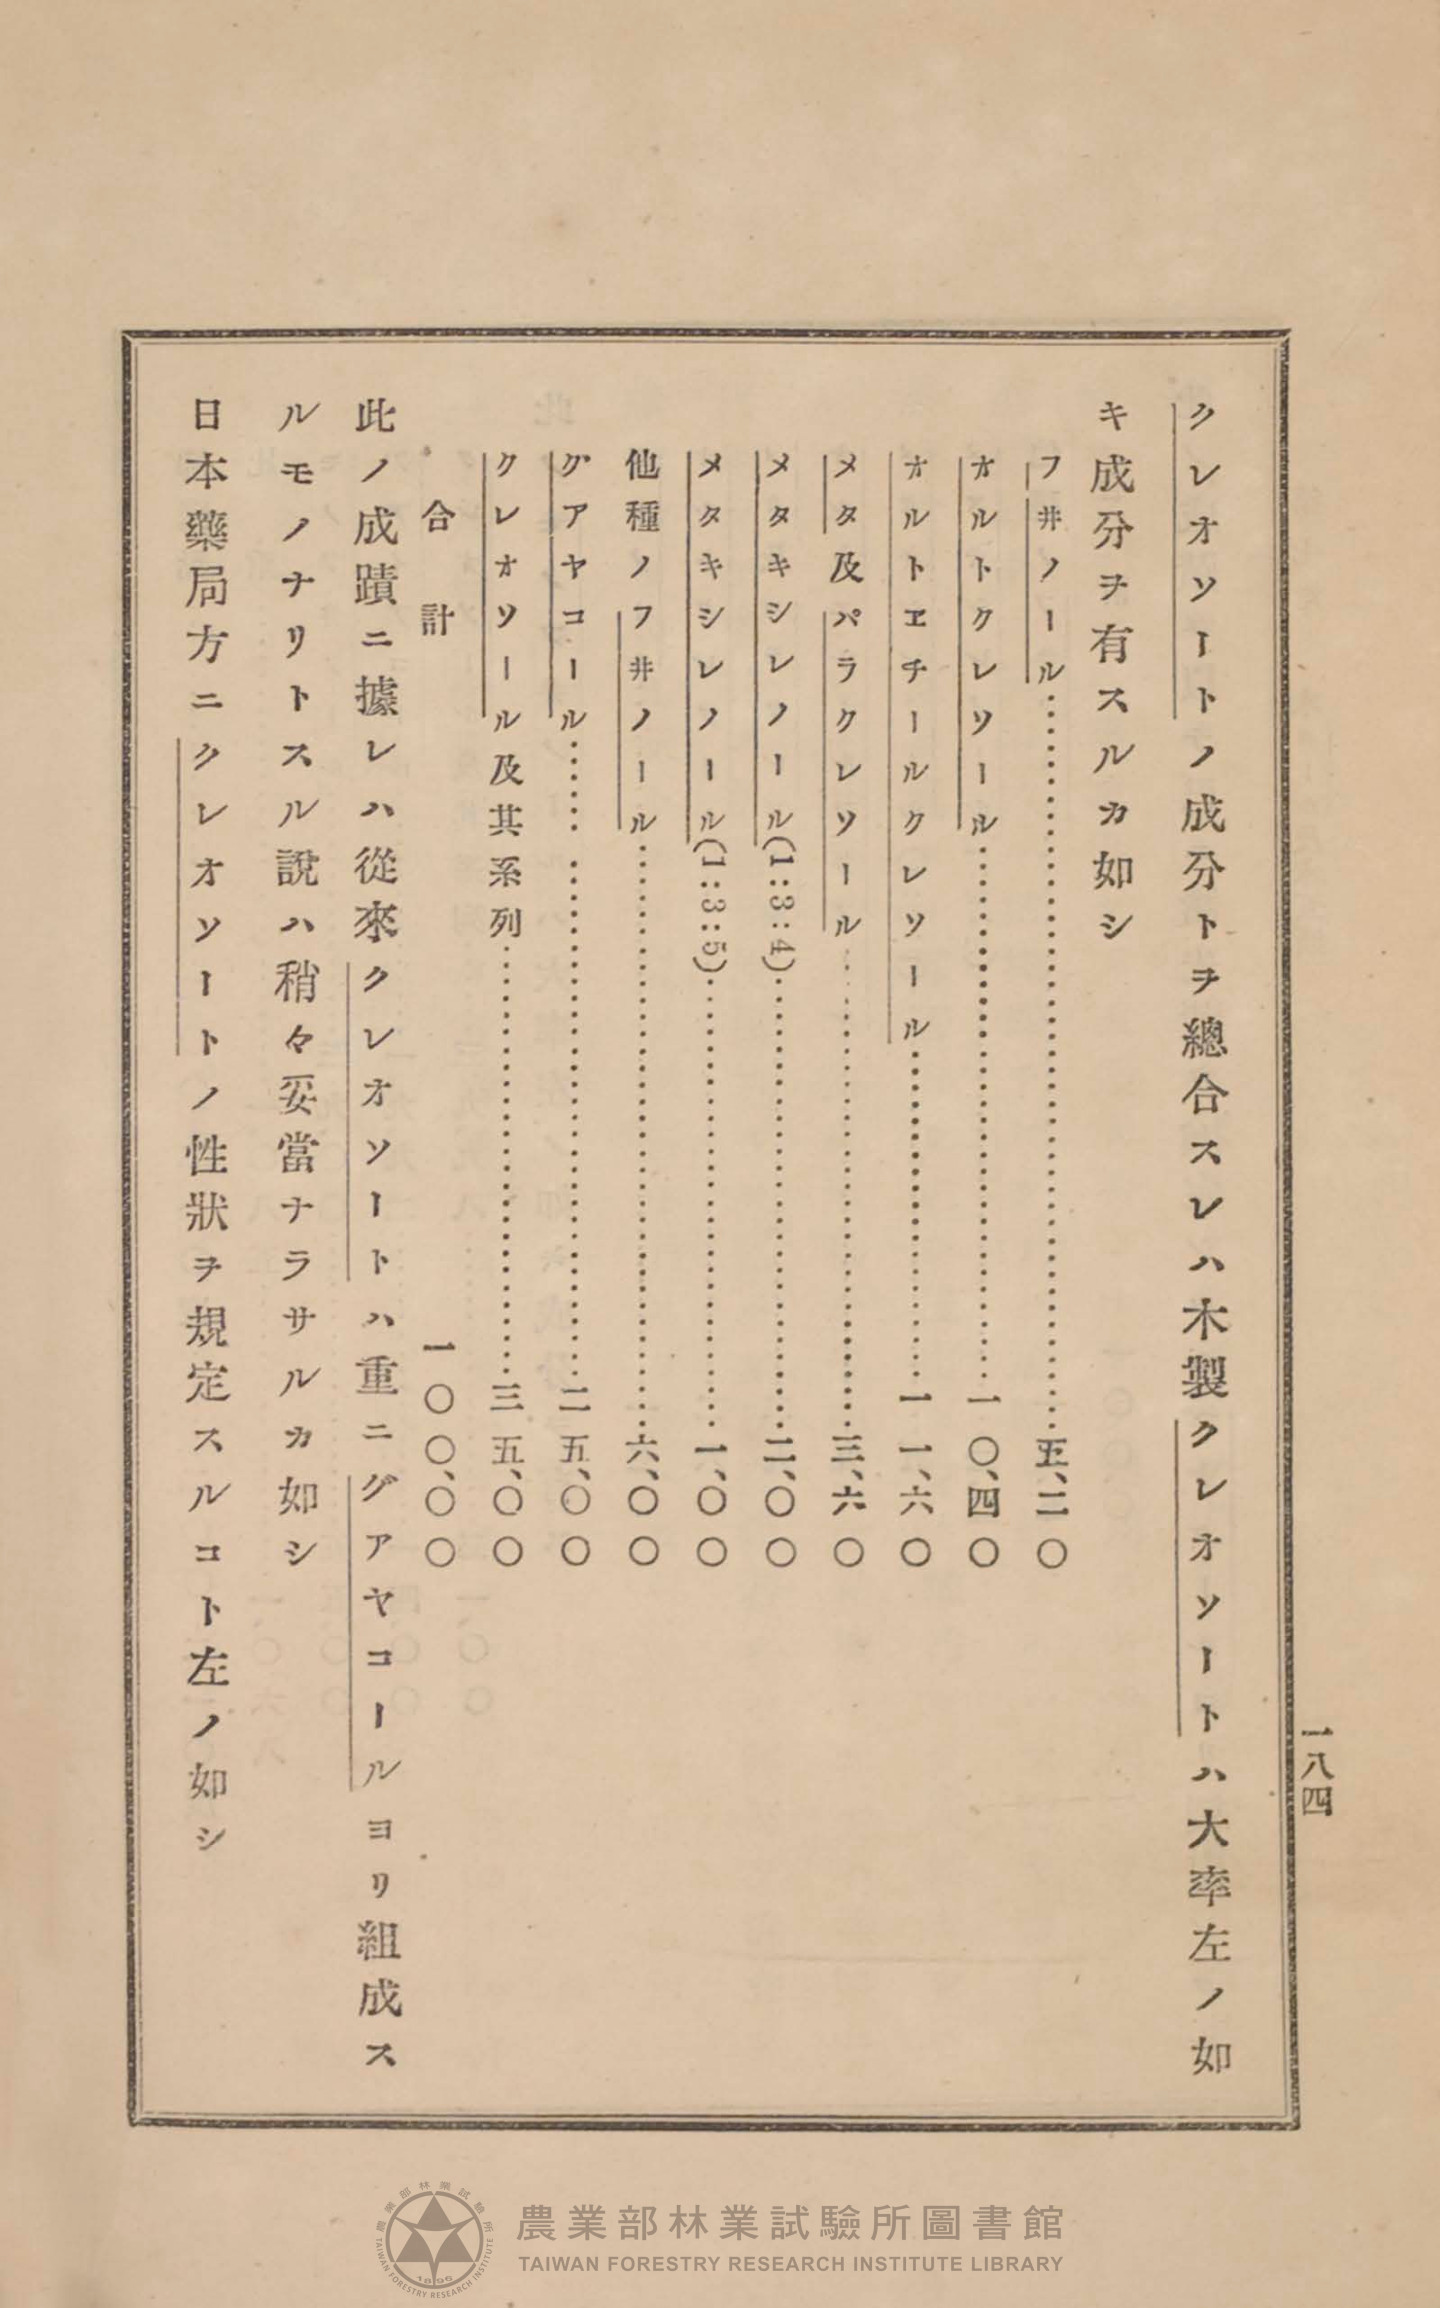 一八四
クレオソートノ成分トヲ總合スレハ木製クレオソートハ大率左ノ如
キ成分ヲ有スルカ如シ
フ井ノール……………………五、二〇
オルトクレソール……………………一〇、四〇
オルトヱチールクレソール……………………一一、六〇
メタ及パラクレソール……………………三、六〇
メタキシレノール(1:3:4)……………………二、〇〇
メタキシレノール(1:3:5)……………………一、〇〇
他種ノフ井ノール……………………六、〇〇
グアヤコール……………………二五、〇〇
クレオソール及其系列……………………三五、〇〇
合計 一〇〇、〇〇
此ノ成蹟ニ據レハ從來クレオソートハ重ニグアヤコールヨリ組成ス
ルモノナリトスル說ハ稍々妥當ナラサルカ如シ
日本藥局方ニクレオソートノ性狀ヲ規定スルコト左ノ如シ
農業部林業試驗所圖書館
TAIWAN FORESTRY RESEARCH INSTITUTE LIBRARY
農業部林業試驗所
TAIWAN FORESTRY RESEARCH INSTITUTE
1896